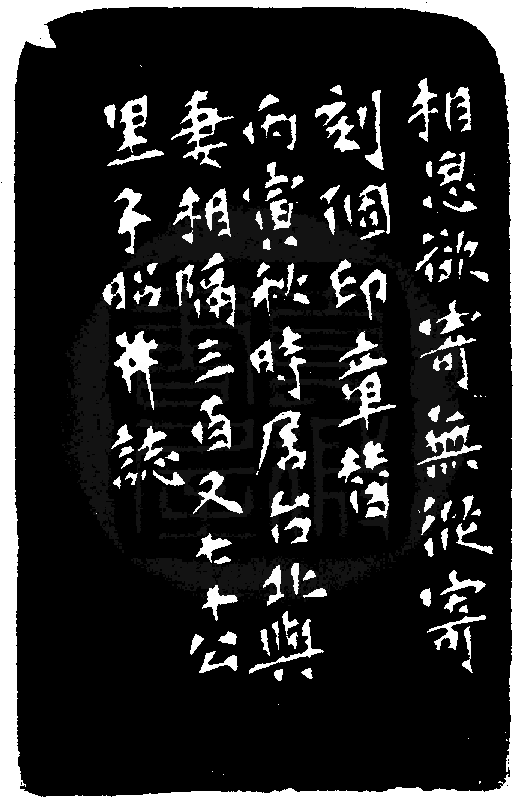 相思欲寄無從寄
刻個印章替
丙寅秋時居台北與
妻相隔三百又七十公
里子昭并誌